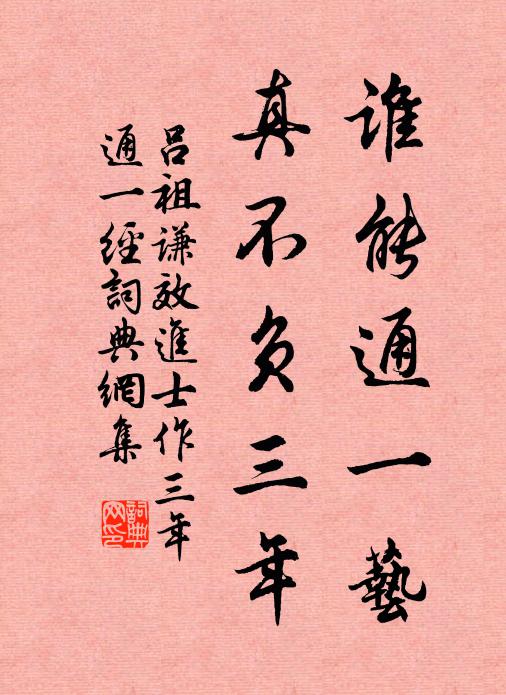 誰能通一藝
真不負三年
呂祖謙效進士作三年
通一經詞典網集
詞典
网印